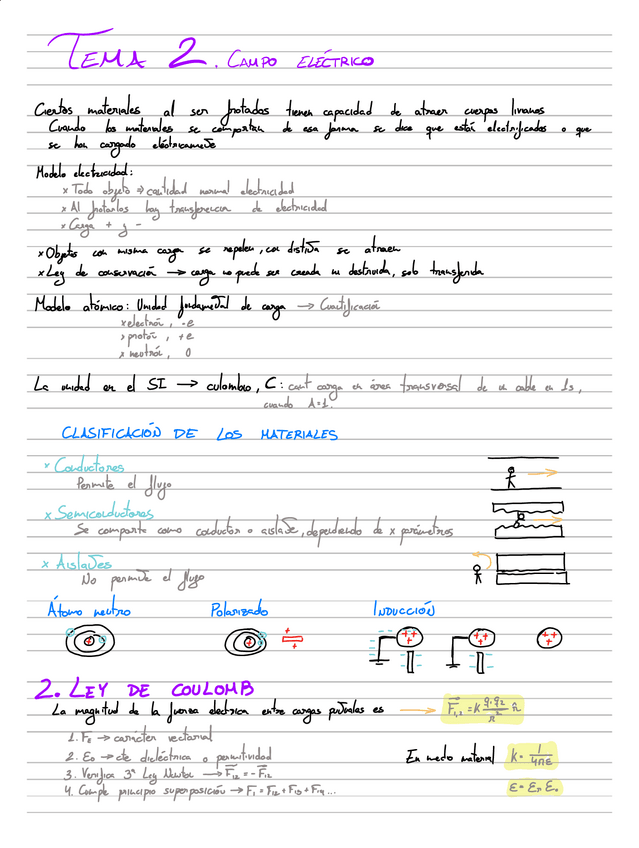 TEMA 2. CAMPO ELÉCTRICO
Ciertos materiales al ser frotados tienen capacidad de atraer cuerpos livianos
Cuando los materiales se comportan de esa forma se dice que están electrificados o que
se han cargado eléctricamente
Modelo electricidad:
× Todo objeto ⇒ cantidad normal electricidad
× Al frotarlos hay transferencia de electricidad
× Carga + y -
× Objetos con misma carga se repelen, con distinta se atraen
× Ley de conservación → carga no puede ser creada ni destruida, solo transferida
Modelo atómico: Unidad fundamental de carga → Cuantificación
× electrón, -e
× protón, +e
× neutrón, 0
La unidad en el SI → culombio, C: cant carga en área transversal de un cable en 1s,
cuando A=1.
CLASIFICACIÓN DE LOS MATERIALES
× Conductores
Permite el flujo
× Semiconductores
Se comporta como conductor o aislante, dependiendo de x parámetros
× Aislantes
No permite el flujo
Átomo neutro Polarizado INDUCCIÓN
2. LEY DE COULOMB
La magnitud de la fuerza electrica entre cargas puntuales es → F⃗₁,₂ = K q₁·q₂/r² r̂
1. Fe → carácter vectorial
2. E₀ → cte dieléctrica o permitividad
3. Verifica 3ª Ley Newton → F⃗₁₂ = -F⃗₁₂
4. Cumple principio superposición → F₁ = F₁₂ + F₁₃ + F₁₄ ...
En medio material K = 1/4πε
ε = εᵣ ε₀